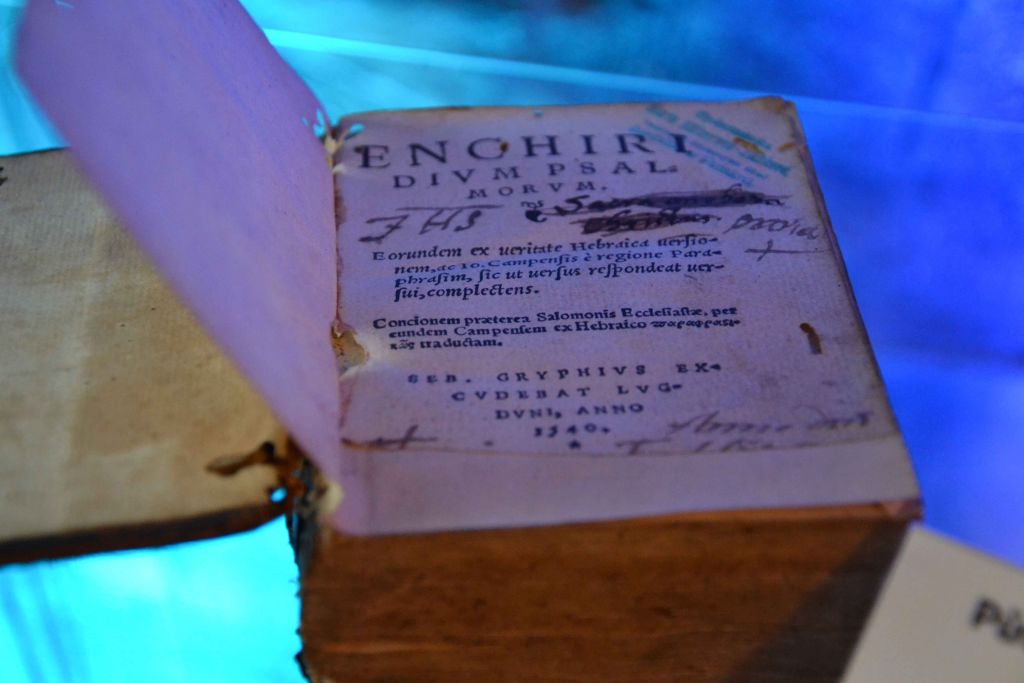 ENCHIRI
DIVM PSAL-
MORVM.
JHS
Eorundem ex ueritate Hebraica uersio-
nem, ac Io. Campensis è regione Para-
phrasim, sic ut uersus respondeat uer-
sui, complectens.
Concionem præterea Salomonis Ecclesiastæ, per
eundem Campensem ex Hebraico παραφρασι-
κῶς traductam.
SEB. GRYPHIVS EX-
CVDEBAT LVG-
DVNI, ANNO
1540.